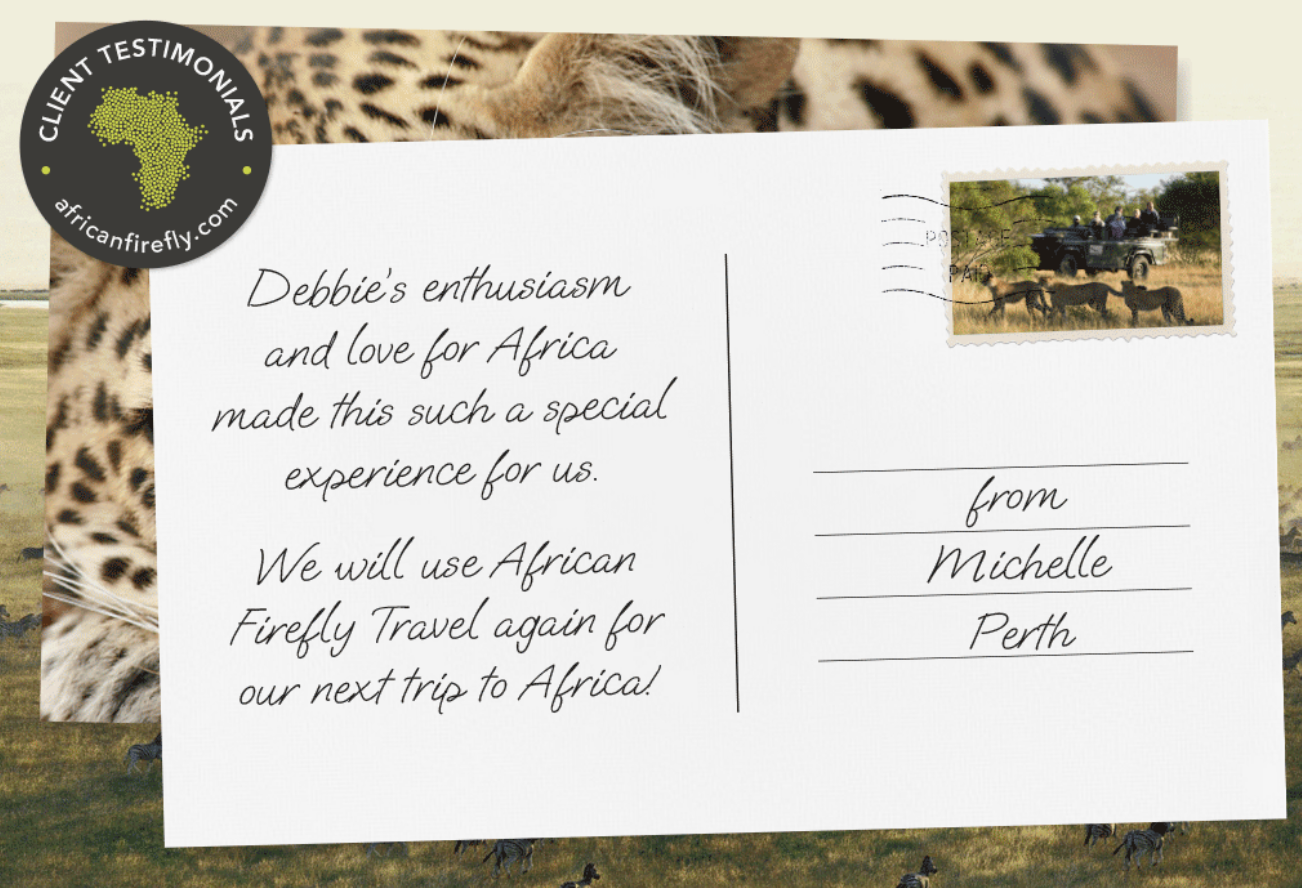 CLIENT TESTIMONIALS
africanfirefly.com
POSTAGE
PAID
Debbie's enthusiasm
and love for Africa
made this such a special
experience for us.
We will use African
Firefly Travel again for
our next trip to Africa!
from
Michelle
Perth